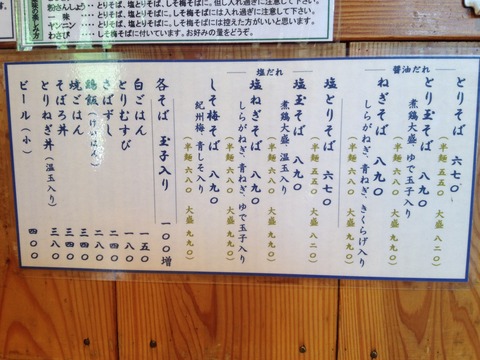 とりそば、塩とりそば、しそ梅そばに。但し入れ過ぎに注意して下さい。
一味 とりそば、塩とりそば、しそ梅そばには入れ過ぎに注意して下さい。
しそ梅そばには控えた方がいいと思います。
わさび しそ梅そばに付いています。お好みの量をどうぞ。
醤油だれ
とりそば 六七〇
(半麺 五五〇 大盛 八二〇)
とり玉そば 八九〇
煮鶏大盛、ゆで玉子入り
(半麺 六八〇 大盛 九九〇)
ねぎそば 八九〇
しらがねぎ、青ねぎ、きくらげ入り
(半麺 六八〇 大盛 九九〇)
塩だれ
塩とりそば 六七〇
(半麺 五五〇 大盛 八二〇)
塩玉そば 八九〇
煮鶏大盛、温玉入り
(半麺 六八〇 大盛 九九〇)
塩ねぎそば 八九〇
しらがねぎ、青ねぎ、ゆで玉子入り
(半麺 六八〇 大盛 九九〇)
しそ梅そば 八九〇
紀州梅、青しそ入り
(半麺 六八〇 大盛 九九〇)
各そば 玉子入り 一〇〇増
白ごはん 一五〇
とりむすび 一八〇
さばずし 二八〇
鶏飯(けいはん) 二四〇
焼ごはん 三八〇
そぼろ丼 三四〇
とりねぎ丼(温玉入り) 三八〇
ビール(小) 四〇〇